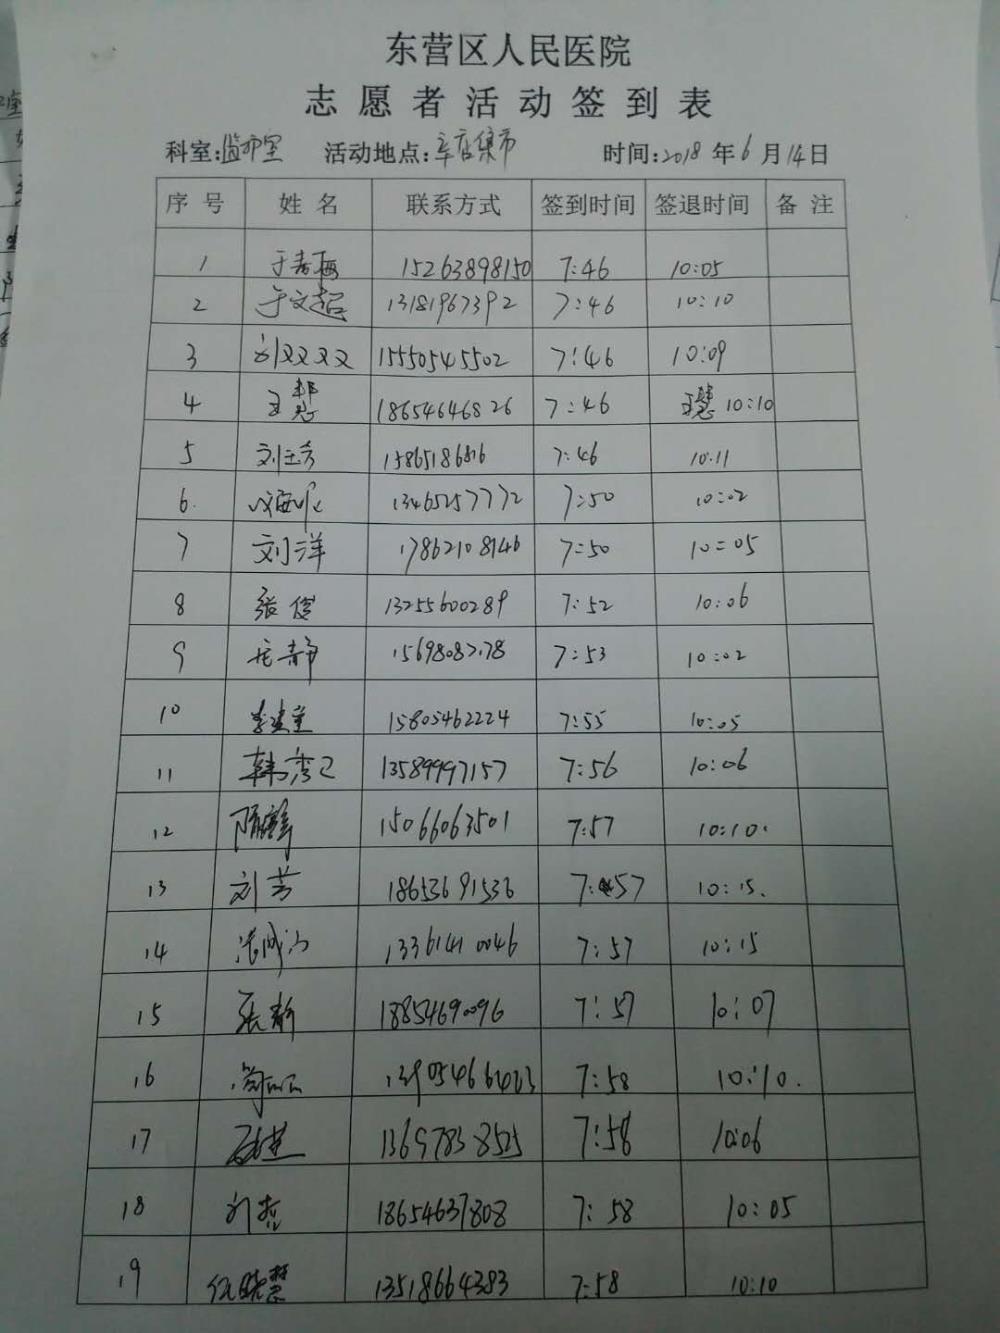 东营区人民医院
志愿者活动签到表
科室: 活动地点:辛店集市 时间:2018年6月14日
序号 姓名 联系方式 签到时间 签退时间 备注
1 于春梅 15263898150 7:46 10:05
2 于文超 13181967392 7:46 10:10
3 刘双双 15550545502 7:46 10:09
4 王慧 18654646826 7:46 王慧 10:10
5 刘玉芳 15865186816 7:46 10:11
6. 13465257772 7:50 10:02
7 刘洋 17862108146 7:50 10:05
8 张俊 13255600289 7:52 10:06
9 7:53 10:02
10 15805462224 7:55 10:05
11 韩 13589997157 7:56 10:06
12 隋 15066063501 7:57 10:10.
13 刘芳 18653691536 7:57 10:15.
14 13361410046 7:57 10:15
15 张静 18854690096 7:57 10:07
16 7:58 10:10.
17 13697838525 7:58 10:06
18 刘哲 18654637808 7:58 10:05
19 任晓慧 13518664383 7:58 10:10